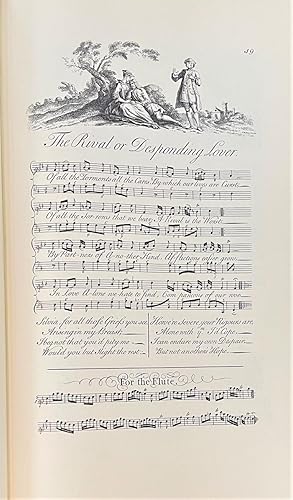 59
The Rival or Desponding Lover.
Of all the Torments all the Cares By which our lives are Curst
Of all the Sor-rows that we bear, A Rival is the Worst
By Part-ners of A-no-ther Kind, Af-flictions easier grow
In Love A-lone we hate to find, Com-panions of our woe
Silvia, for all those Griefs you see,
Arising in my Breast,
I beg not that you'd pity me
Would you but slight the rest.
How e're Severe your Rigours are,
Alone with ym. I'd Cope
I can endure my own Despair
But not anothers Hope.
For the Flute